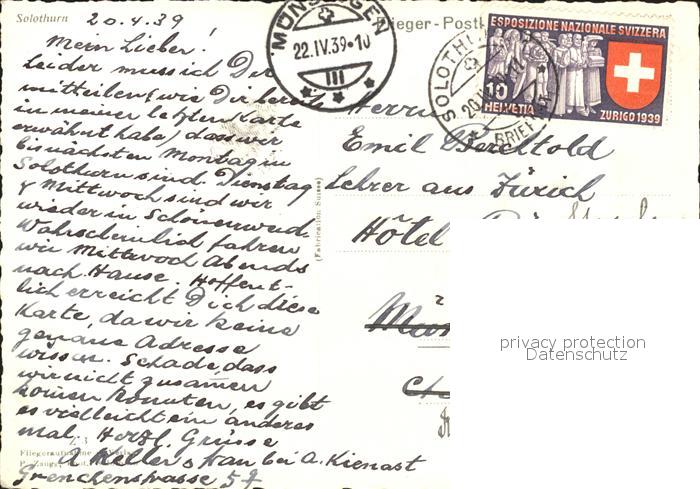 Solothurn
20.4.39
Mein Lieber!
Leider muss ich Dir
mitteilen (wie Dir bereits
in meiner letzten Karte
erwähnt habe) dass wir
bis nächsten Montag in
Solothurn sind. Dienstag
& Mittwoch sind wir
wieder in Schönenwerd
Wahrscheinlich fahren
wir Mittwoch Abends
nach Hause. Hoffent-
lich erreicht Dich diese
Karte, da wir keine
genaue Adresse
wissen. Schade, dass
wir nicht zusammen
kommen konnten, es gibt
es vielleicht ein anderes
mal. Herzl. Grüsse
A Keller & Frau bei A. Kienast
Grenchenstrasse 57
Fliegeraufnahme
P. Zaugg,
(Fabrication Suisse)
Flieger-Postk
MÜNSINGEN
22.IV.39-10
III
SOLOTHURN
BRIEF
ESPOSIZIONE NAZIONALE SVIZZERA
10
HELVETIA
ZURIGO 1939
Herrn
Emil Berchtold
Lehrer aus Zürich
Hôtel
privacy protection
Datenschutz